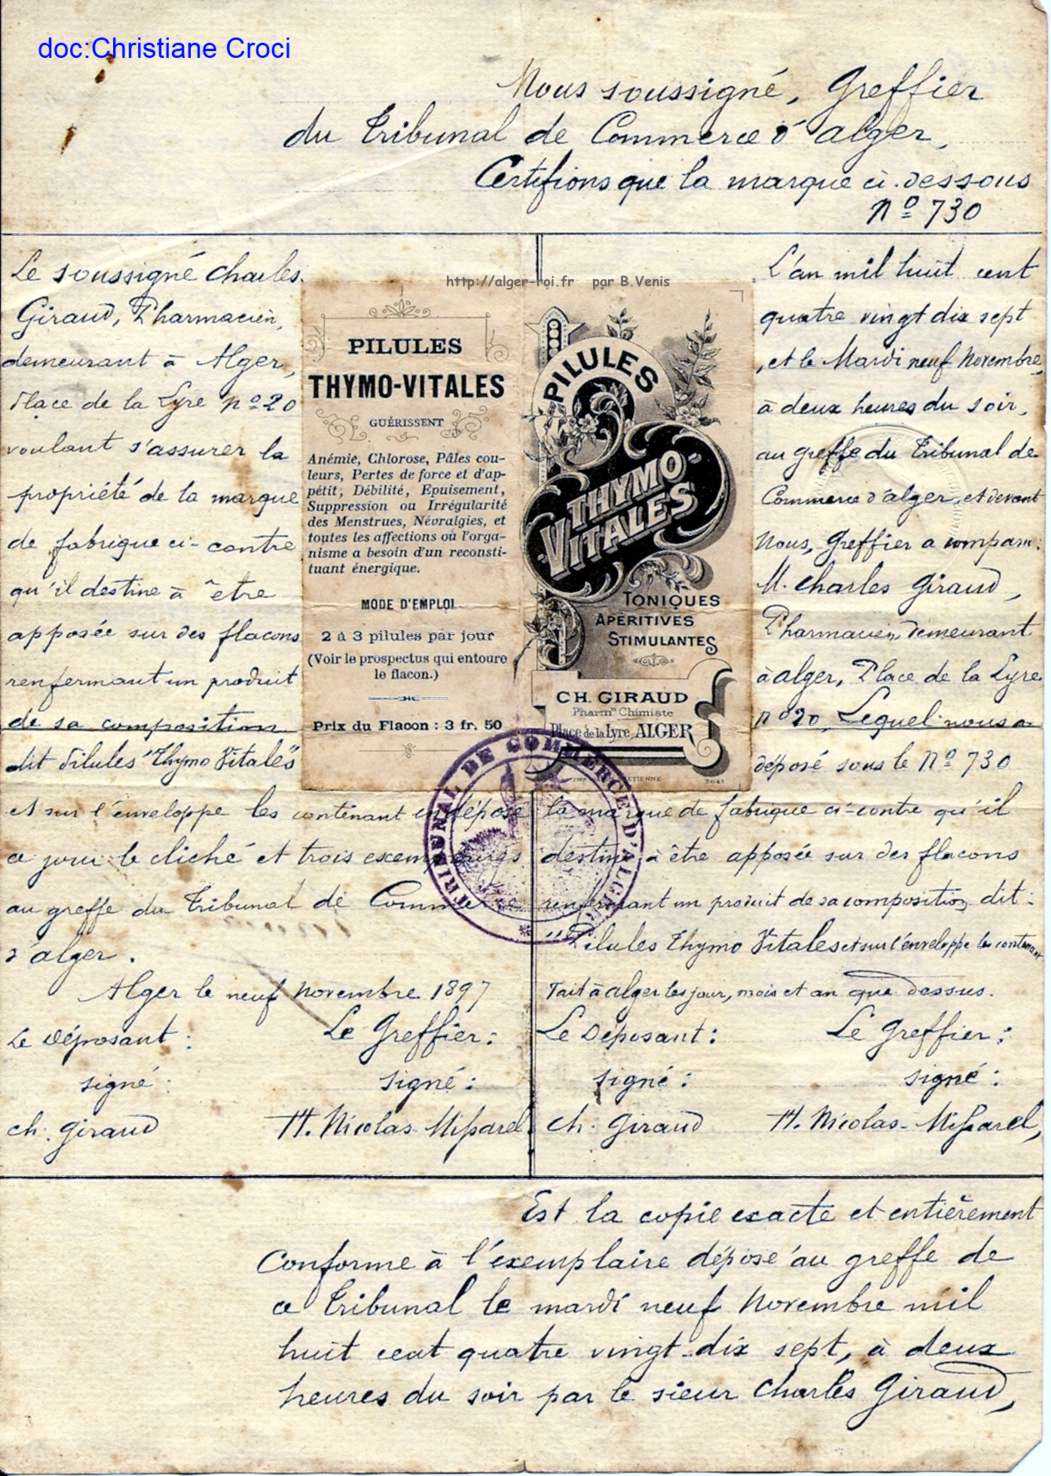 doc:Christiane Croci
Nous soussigné, Greffier
du Tribunal de Commerce d'alger,
Certifions que la marque ci-dessous
Nº 730
Le soussigné Charles
Giraud, Pharmacien,
demeurant à Alger,
Place de la Lyre nº 20
voulant s'assurer la
propriété de la marque
de fabrique ci-contre
qu'il destine à être
apposée sur des flacons
renfermant un produit
de sa composition
dit Pilules "Thymo Vitales"
et sur l'enveloppe les contenant a déposé
ce jour le cliché et trois exemplaires
au greffe du Tribunal de Commerce
d'alger.
Alger le neuf novembre 1897
Le Déposant :
Le Greffier :
signé :
signé :
ch. Giraud
H. Nicolas-Missarel
http://alger-roi.fr par B.Venis
PILULES
THYMO-VITALES
GUÉRISSENT
Anémie, Chlorose, Pâles cou-
leurs, Pertes de force et d'ap-
pétit, Débilité, Epuisement,
Suppression ou Irrégularité
des Menstrues, Névralgies, et
toutes les affections où l'orga-
nisme a besoin d'un reconsti-
tuant énergique.
MODE D'EMPLOI
2 à 3 pilules par jour
(Voir le prospectus qui entoure
le flacon.)
Prix du Flacon : 3 fr. 50
PILULES
THYMO-
VITALES
TONIQUES
APÉRITIVES
STIMULANTES
CH. GIRAUD
Pharmen Chimiste
Place de la Lyre, ALGER
TRIBUNAL DE COMMERCE D'ALGER
L'an mil huit cent
quatre vingt dix sept
, et le Mardi neuf Novembre,
à deux heures du soir,
au greffe du Tribunal de
Commerce d'alger, et devant
Nous, Greffier a comparu:
M. Charles Giraud,
Pharmacien demeurant
à alger, Place de la Lyre
nº 20, Lequel nous a
déposé sous le Nº 730
la marque de fabrique ci-contre qu'il
destine à être apposée sur des flacons
renfermant un produit de sa composition dit:
"Pilules Thymo Vitales et sur l'enveloppe les contenant
Fait à alger les jour, mois et an que dessus.
Le Déposant :
Le Greffier :
signé :
signé :
Ch. Giraud
H. Nicolas-Missarel,
Est la copie exacte et entièrement
Conforme à l'exemplaire déposé au greffe de
ce Tribunal le mardi neuf Novembre mil
huit cent quatre vingt-dix sept, à deux
heures du soir par le sieur Charles Giraud,